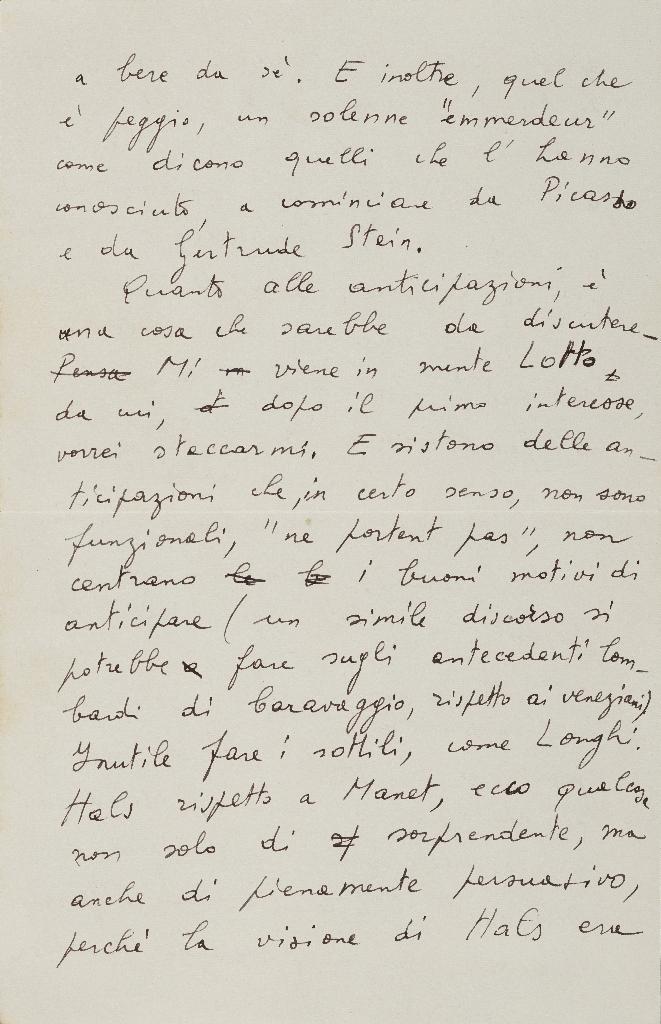 a bere da sè. E inoltre, quel che
è peggio, un solenne "emmerdeur"
come dicono quelli che l'hanno
conosciuto, a cominciare da Picasso
e da Gertrude Stein.
Quanto alle anticipazioni, è
una cosa che sarebbe da discutere_
Pensa Mi viene in mente Lotto,
da cui, dopo il primo interesse,
vorrei staccarmi. Esistono delle an_
ticipazioni che, in certo senso, non sono
funzionali, "ne portent pas", non
centrano i buoni motivi di
anticipare (un simile discorso si
potrebbe fare sugli antecedenti lom_
bardi di Caravaggio, rispetto ai veneziani)
Inutile fare i sottili, come Longhi.
Hals rispetto a Manet, ecco qualcosa
non solo di sorprendente, ma
anche di pienamente persuasivo,
perché la visione di Hals era